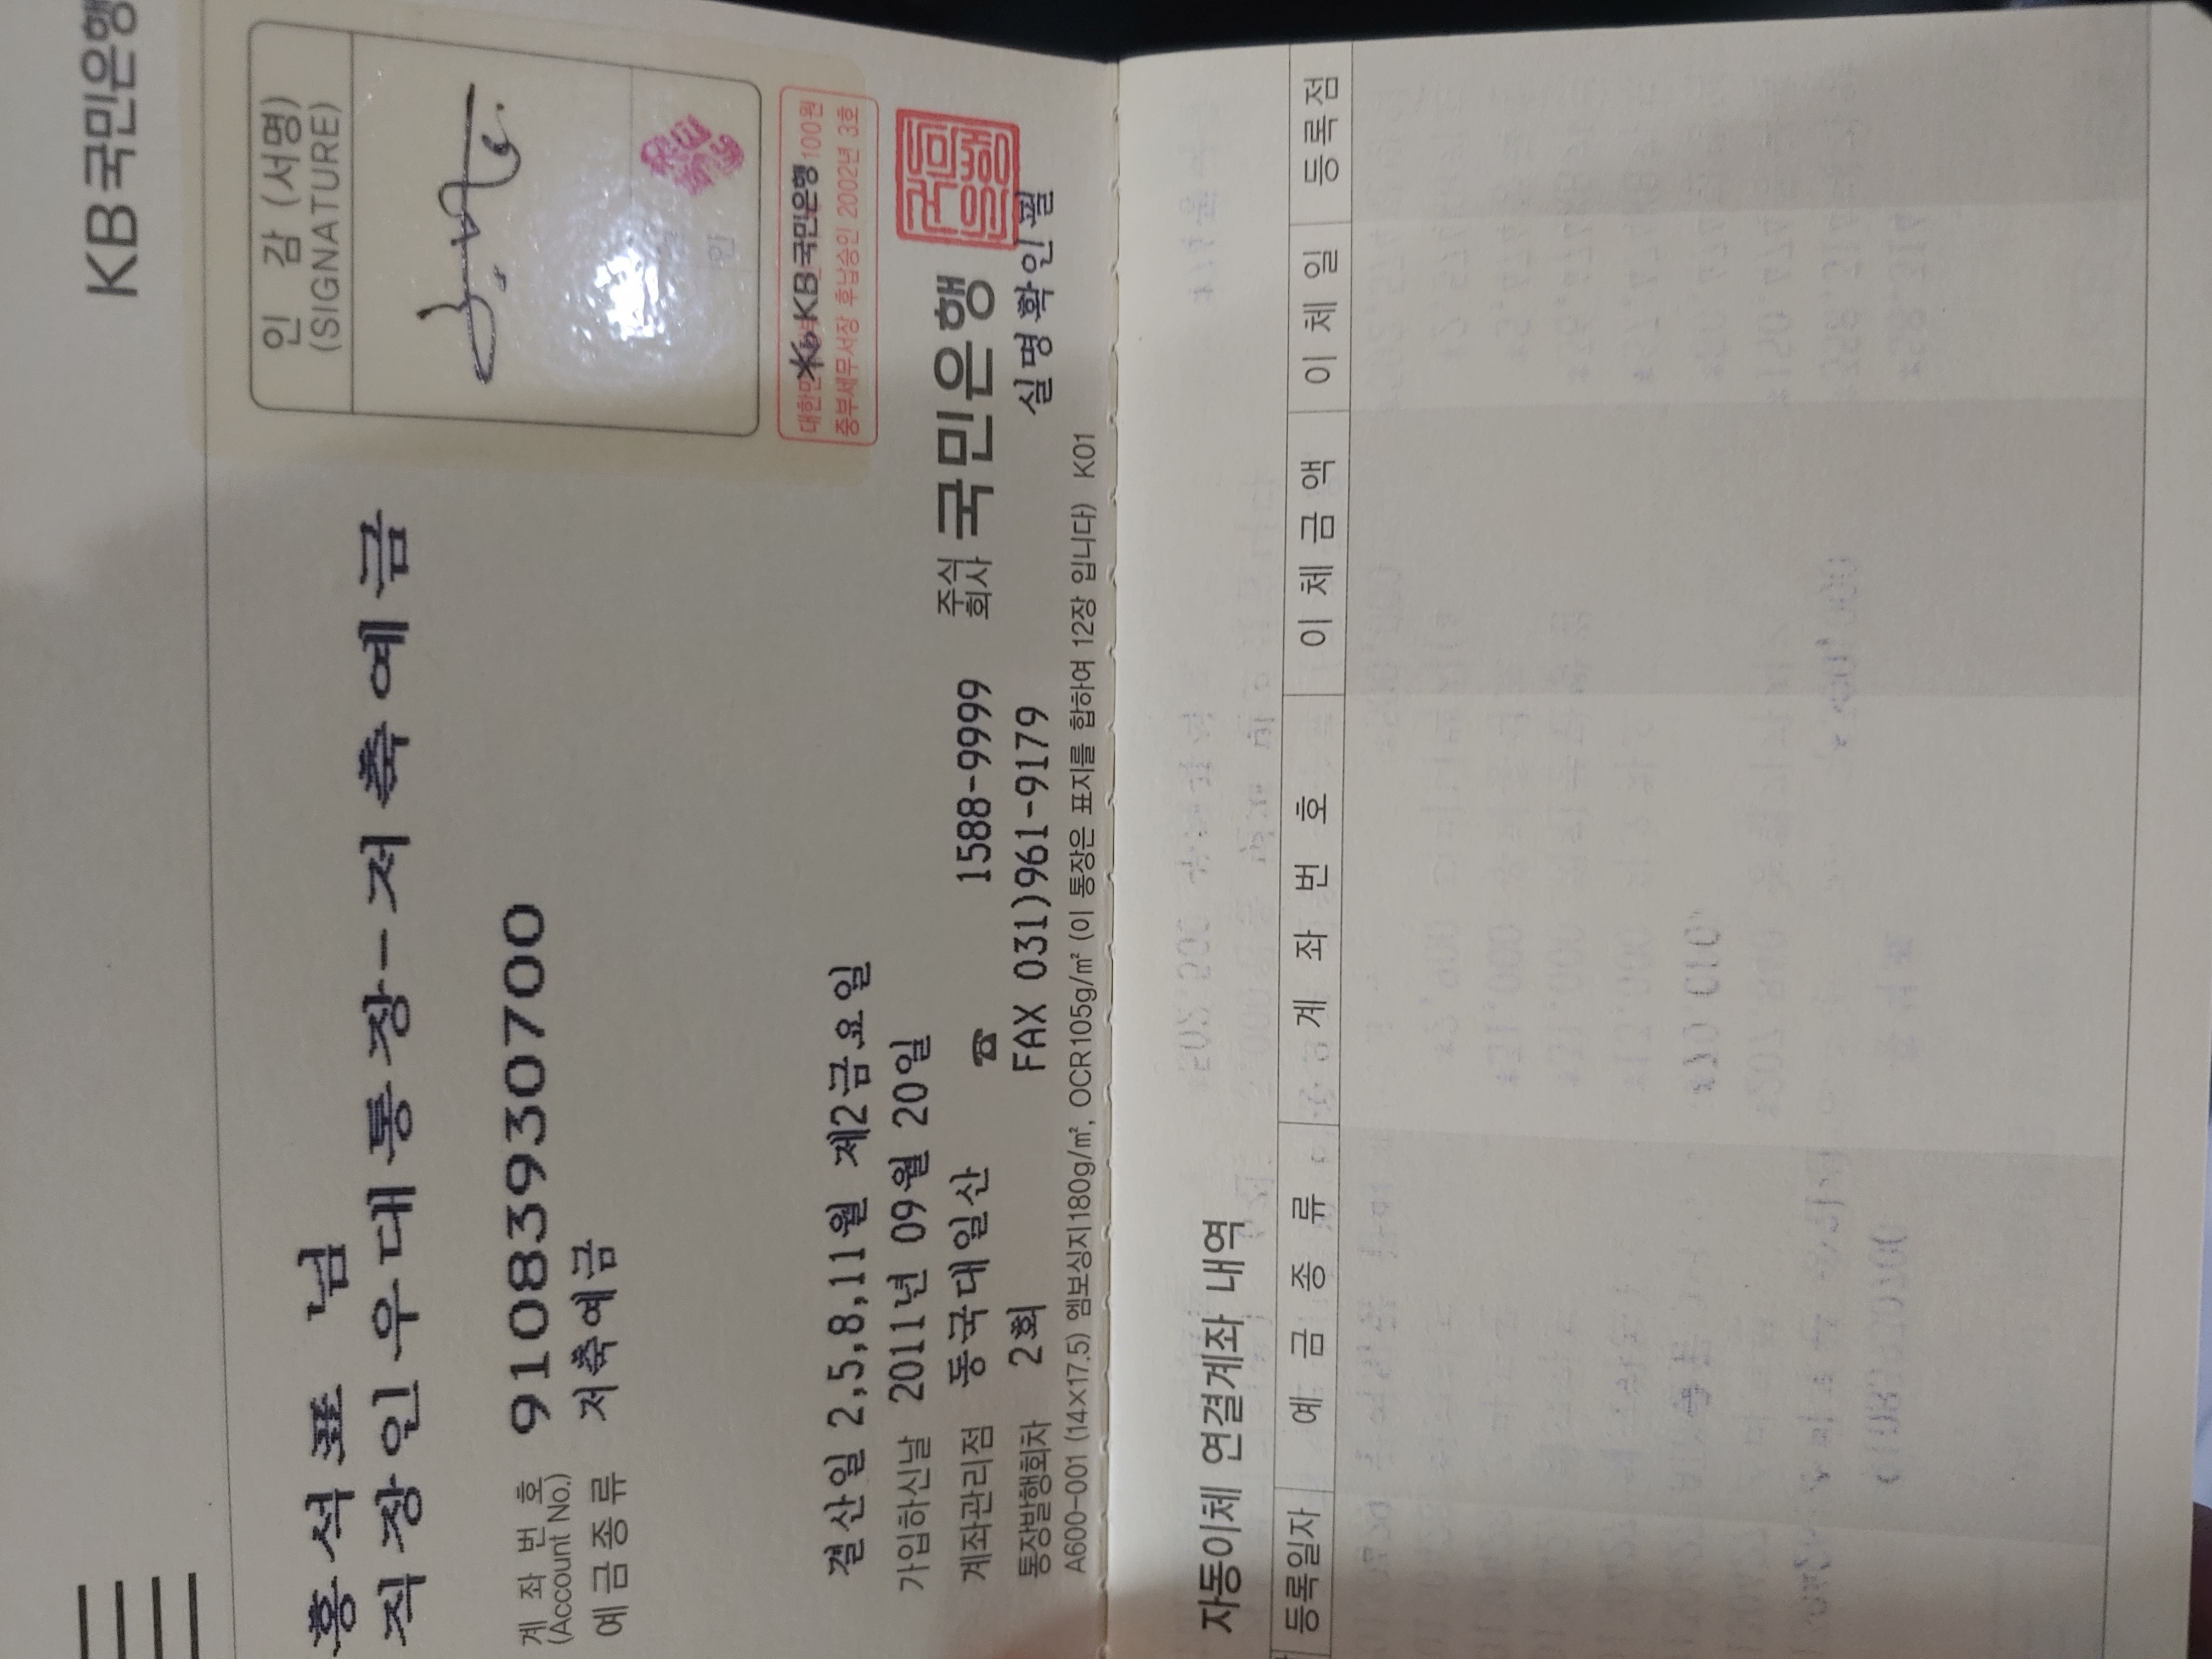 KB국민은행
홍석표 님
직장인우대통장-저축예금
인 감 (서명)
(SIGNATURE)
계 좌 번 호 91083939307​00
(Account No.)
예금종류 저축예금
KB국민은행 100원
중부세무서장 후납승인 2002년 3호
결산일 2,5,8,11월 제2금요일
가입하신날 2011년 09월 20일
계좌관리점 동국대일산 ☎ 1588-9999 주식회사 국민은행
통장발행회차 2회 FAX 031)961-9179 실명확인필
A600-001 (14×17.5) 엠보싱지180g/㎡, OCR105g/㎡ (이 통장은 표지를 합하여 12장 입니다) K01
자동이체 연결계좌 내역
등록일자 예 금 종 류 계 좌 번 호 이 체 금 액 이 체 일 등록점